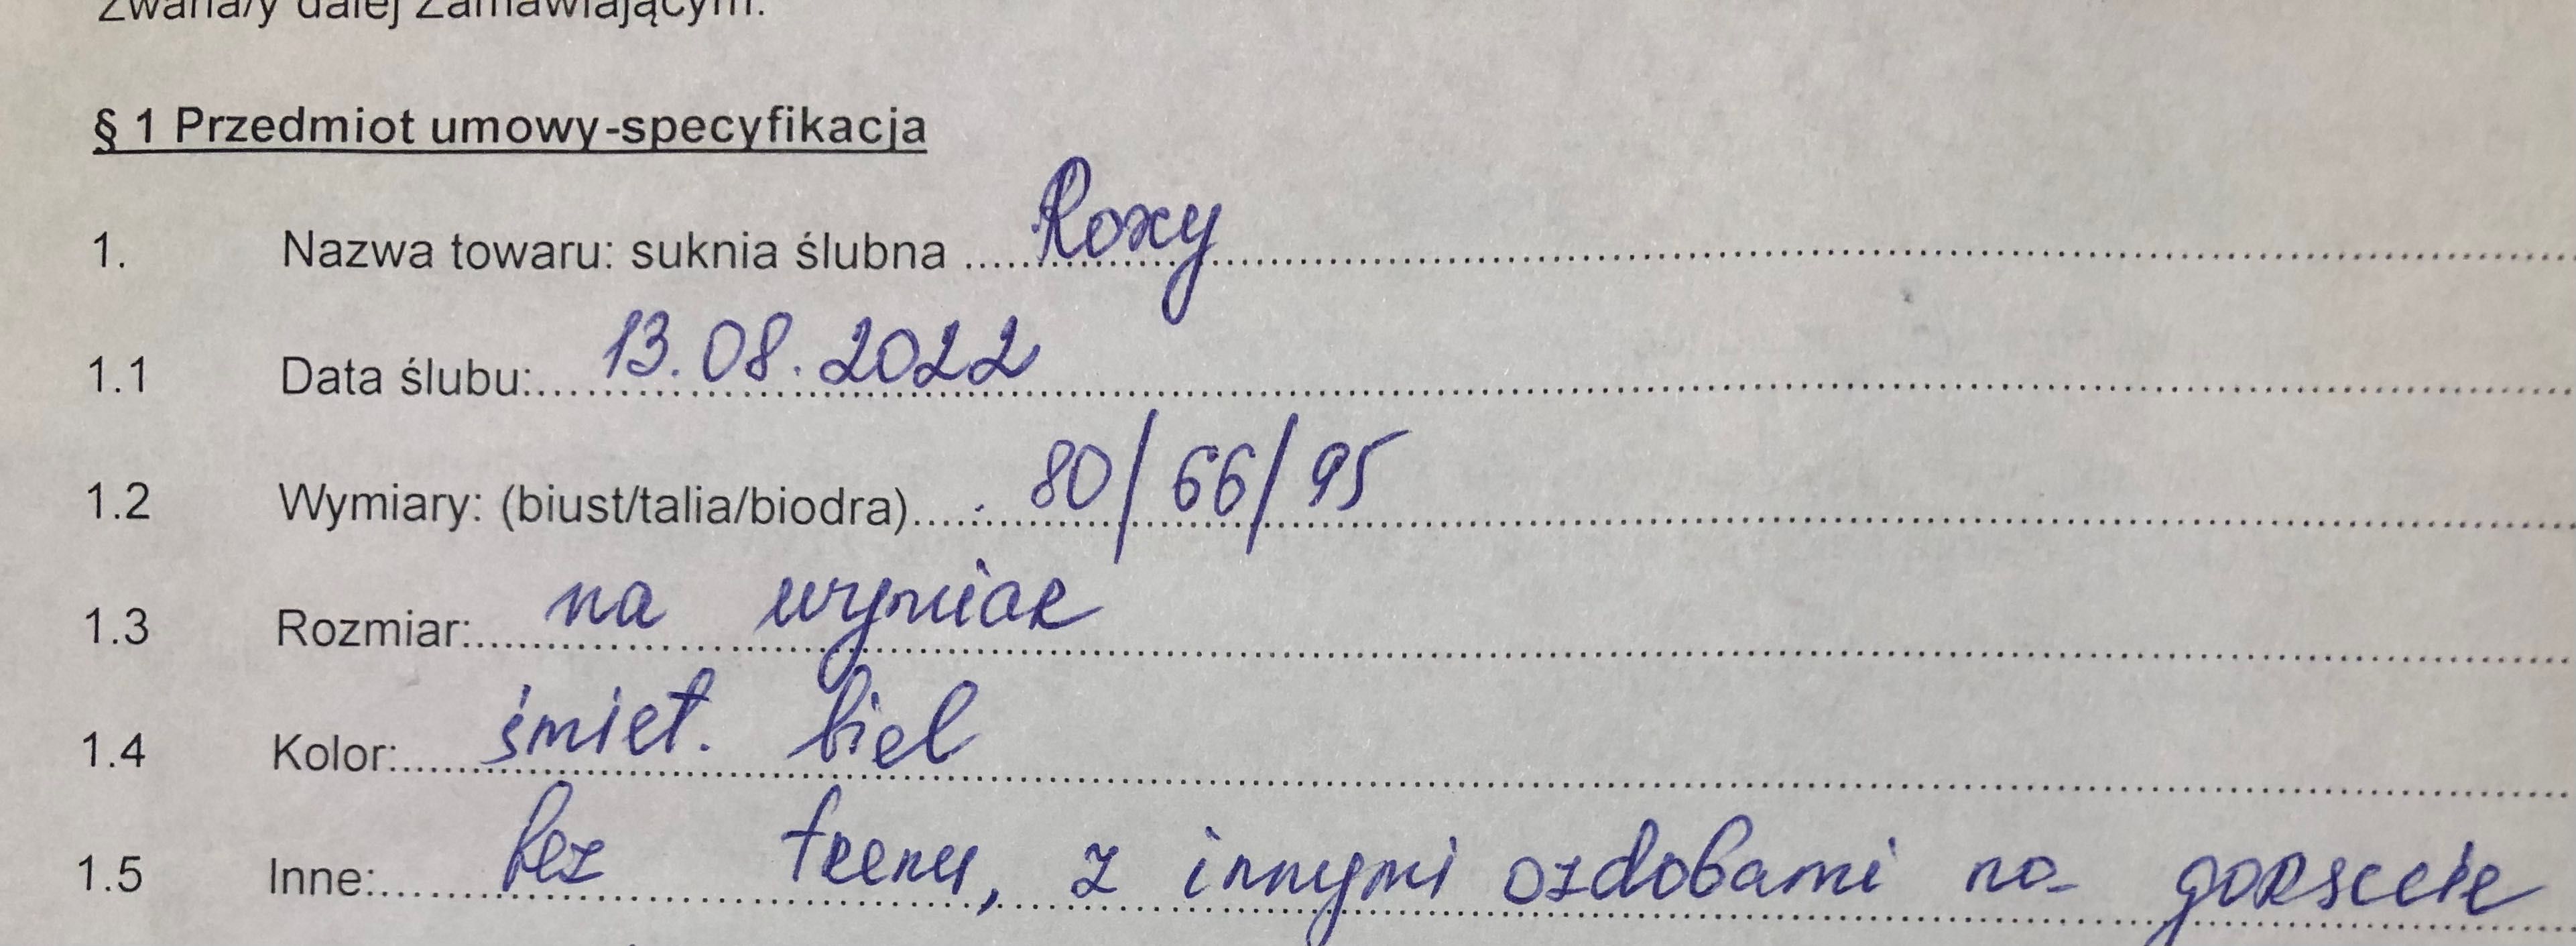 Zwana/y dalej Zamawiającym.
§ 1 Przedmiot umowy-specyfikacja
1. Nazwa towaru: suknia ślubna ..... Roxy
1.1 Data ślubu:.... 13.08.2022
1.2 Wymiary: (biust/talia/biodra)..... 80/66/95
1.3 Rozmiar:.... na wymiar
1.4 Kolor:.... śmiet. biel
1.5 Inne:.... bez trenu, z innymi ozdobami na gorsecie